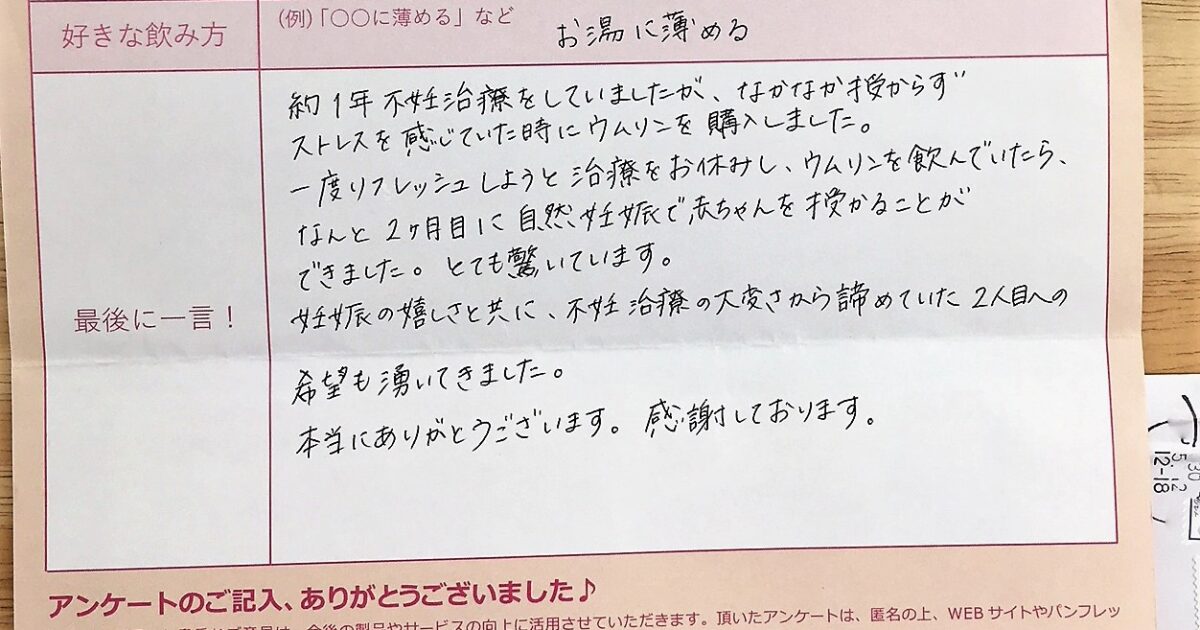 好きな飲み方
(例)「〇〇に薄める」など
お湯に薄める
最後に一言！
約1年不妊治療をしていましたが、なかなか授からず
ストレスを感じていた時にウムリンを購入しました。
一度リフレッシュしようと治療をお休みし、ウムリンを飲んでいたら、
なんと2ヶ月目に自然妊娠で赤ちゃんを授かることが
できました。とても驚いています。
妊娠の嬉しさと共に、不妊治療の大変さから諦めていた2人目への
希望も湧いてきました。
本当にありがとうございます。感謝しております。
アンケートのご記入、ありがとうございました♪
今後の製品やサービスの向上に活用させていただきます。頂いたアンケートは、匿名の上、WEBサイトやパンフレッ
12-18